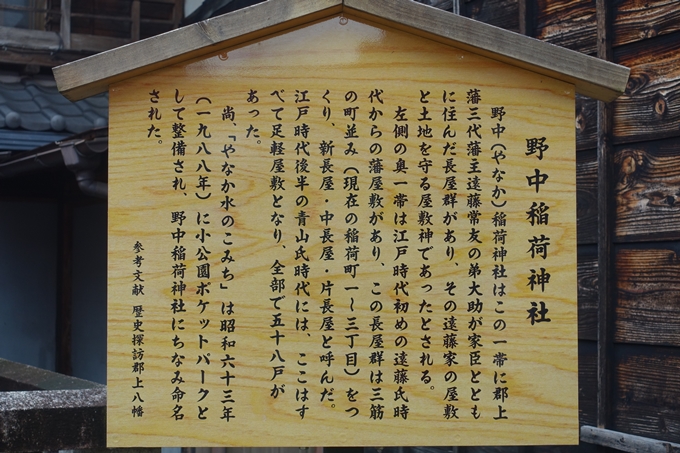 野中稲荷神社
野中（やなか）稲荷神社はこの一帯に郡上
藩三代藩主遠藤常友の弟大助が家臣ととも
に住んだ長屋群があり、その遠藤家の屋敷
と土地を守る屋敷神であったとされる。
左側の奥一帯は江戸時代初めの遠藤氏時
代からの藩屋敷があり、この長屋群は三筋
の町並み（現在の稲荷町一〜三丁目）をつ
くり、新長屋・中長屋・片長屋と呼んだ。
江戸時代後半の青山氏時代には、ここはす
べて足軽屋敷となり、全部で五十八戸が
あった。
尚、「やなか水のこみち」は昭和六十三年
（一九八八年）に小公園ポケットパークと
して整備され、野中稲荷神社にちなみ命名
された。
参考文献 歴史探訪郡上八幡